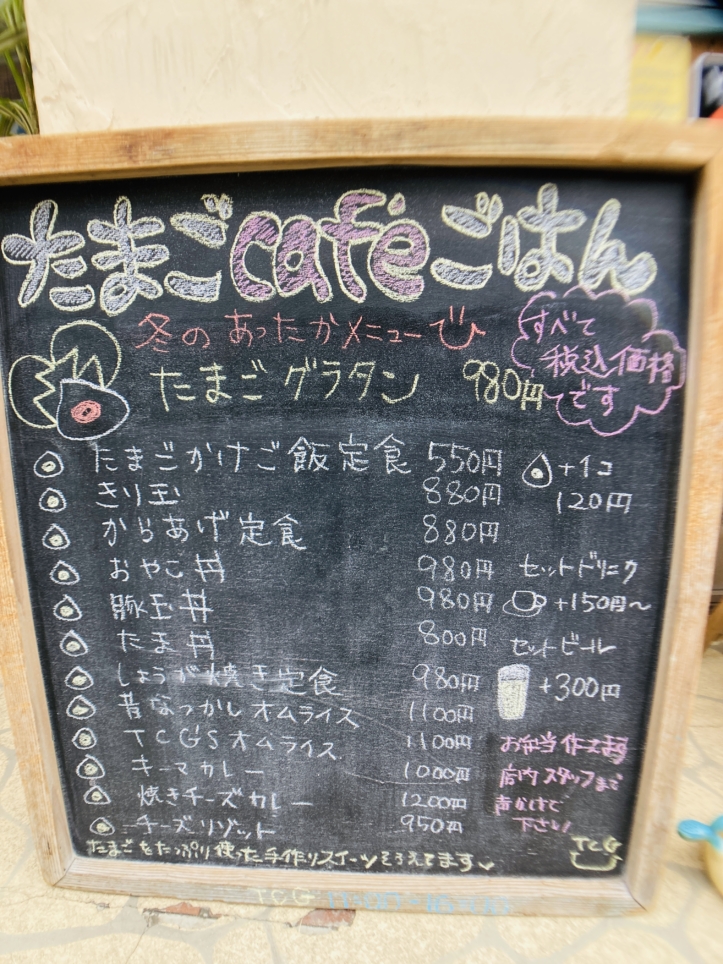 たまごcaféごはん
冬のあったかメニュー
たまごグラタン 980円
すべて
税込価格
です
たまごかけご飯定食 550円
きり玉 880円
からあげ定食 880円
おやこ丼 980円
豚玉丼 980円
たま丼 800円
しょうが焼き定食 980円
昔なつかしオムライス 1100円
TCG'Sオムライス 1100円
キーマカレー 1000円
焼きチーズカレー 1200円
チーズリゾット 950円
+1コ
120円
セットドリンク
+150円〜
セットビール
+300円
お弁当作
店内スタッフまで
声かけて
下さい
たまごをたっぷり使った手作りスイーツそろえてます
TCG
TCG